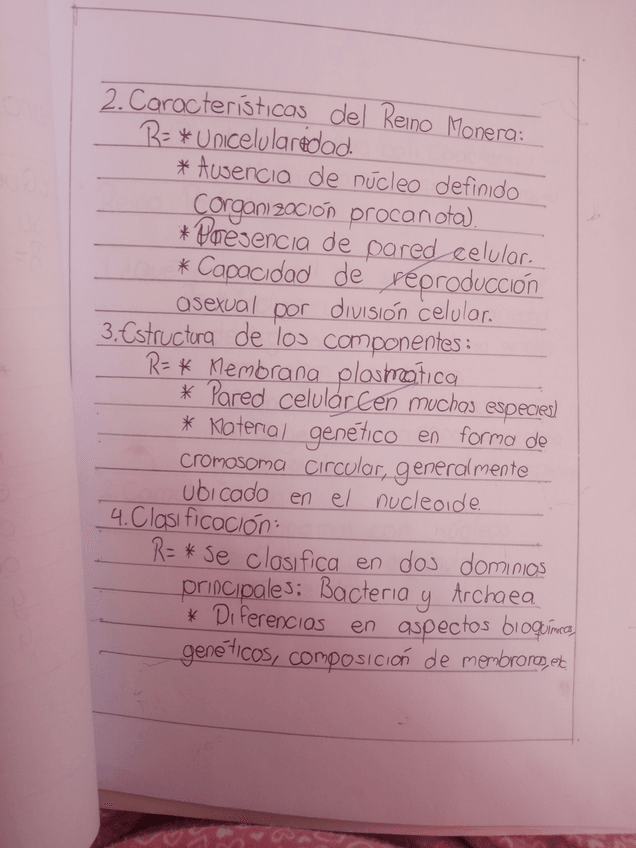 2. Características del Reino Monera:
R= * Unicelularidad.
* Ausencia de núcleo definido
(organización procariota).
* Presencia de pared celular.
* Capacidad de reproducción
asexual por división celular.
3. Estructura de los componentes:
R= * Membrana plasmática
* Pared celular (en muchas especies)
* Material genético en forma de
cromosoma circular, generalmente
ubicado en el nucleoide.
4. Clasificación:
R= * se clasifica en dos dominios
principales: Bacteria y Archaea
* Diferencias en aspectos bioquímicos,
genéticos, composición de membranas, et